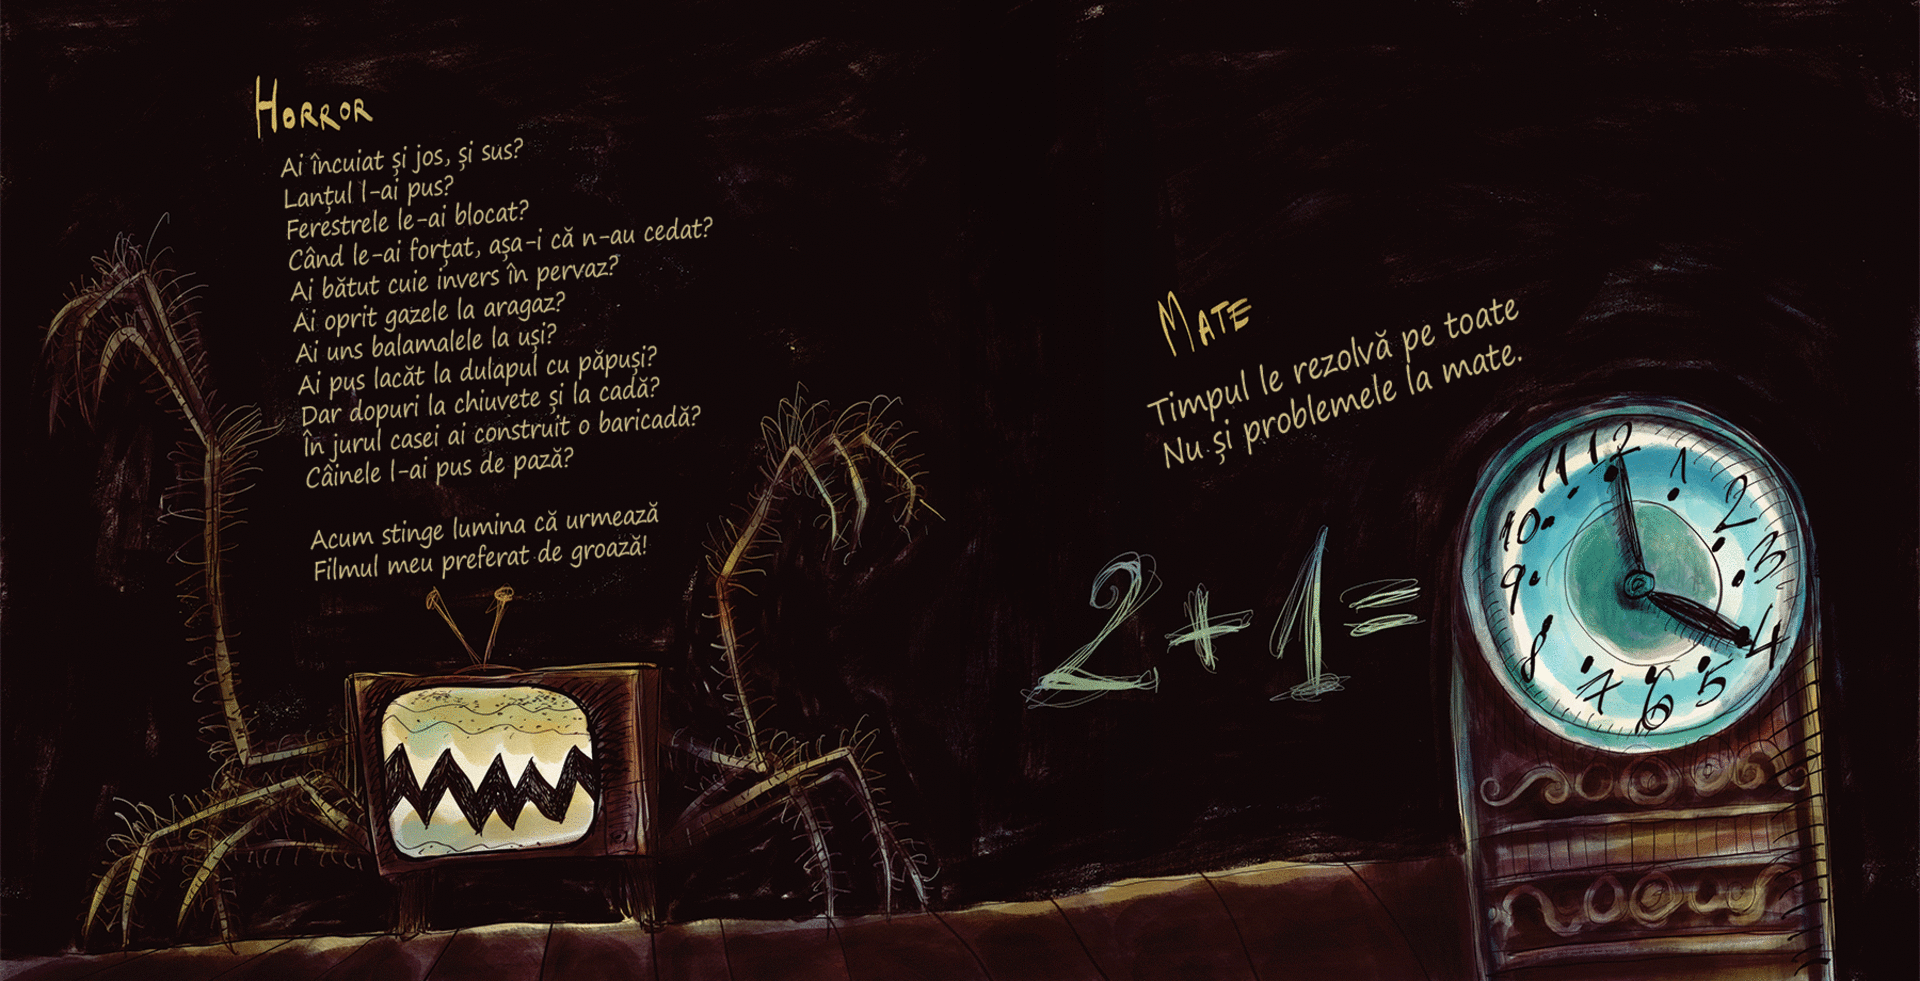 Horror
Ai încuiat și jos, și sus?
Lanțul l-ai pus?
Ferestrele le-ai blocat?
Când le-ai forțat, așa-i că n-au cedat?
Ai bătut cuie invers în pervaz?
Ai oprit gazele la aragaz?
Ai uns balamalele la uși?
Ai pus lacăt la dulapul cu păpuși?
Dar dopuri la chiuvete și la cadă?
În jurul casei ai construit o baricadă?
Câinele l-ai pus de pază?
Acum stinge lumina că urmează
Filmul meu preferat de groază!
Mate
Timpul le rezolvă pe toate
Nu și problemele la mate.
2+1=
12
1
2
3
4
5
6
7
8
9
10
11